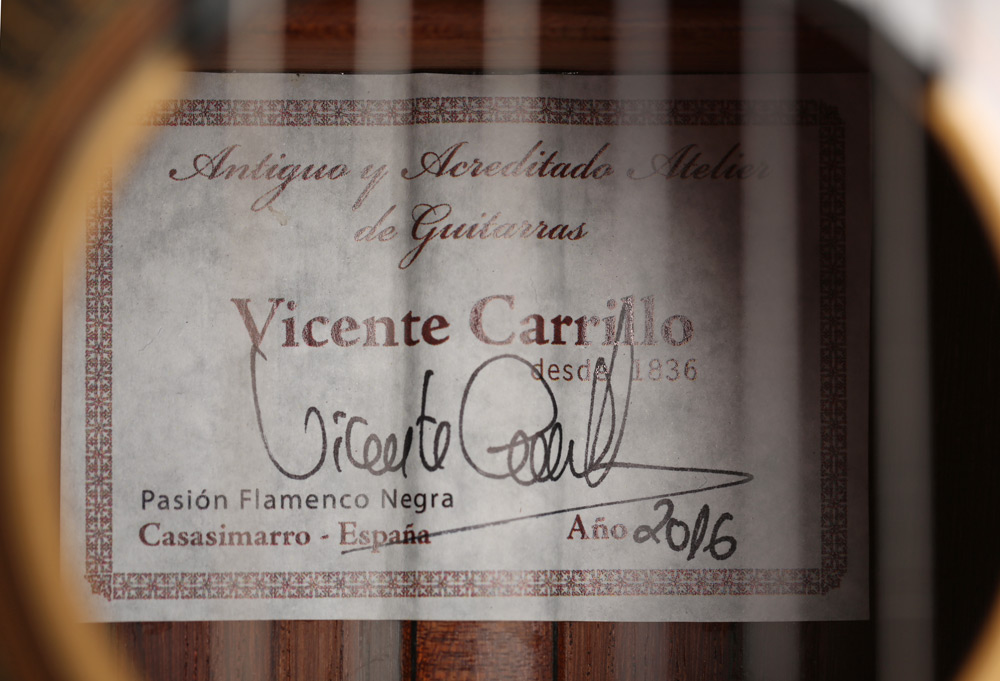 Antiguo y Acreditado Atelier
de Guitarras
Vicente Carrillo
desde 1836
Vicente Carrillo
Pasión Flamenco Negra
Casasimarro - España Año 2016